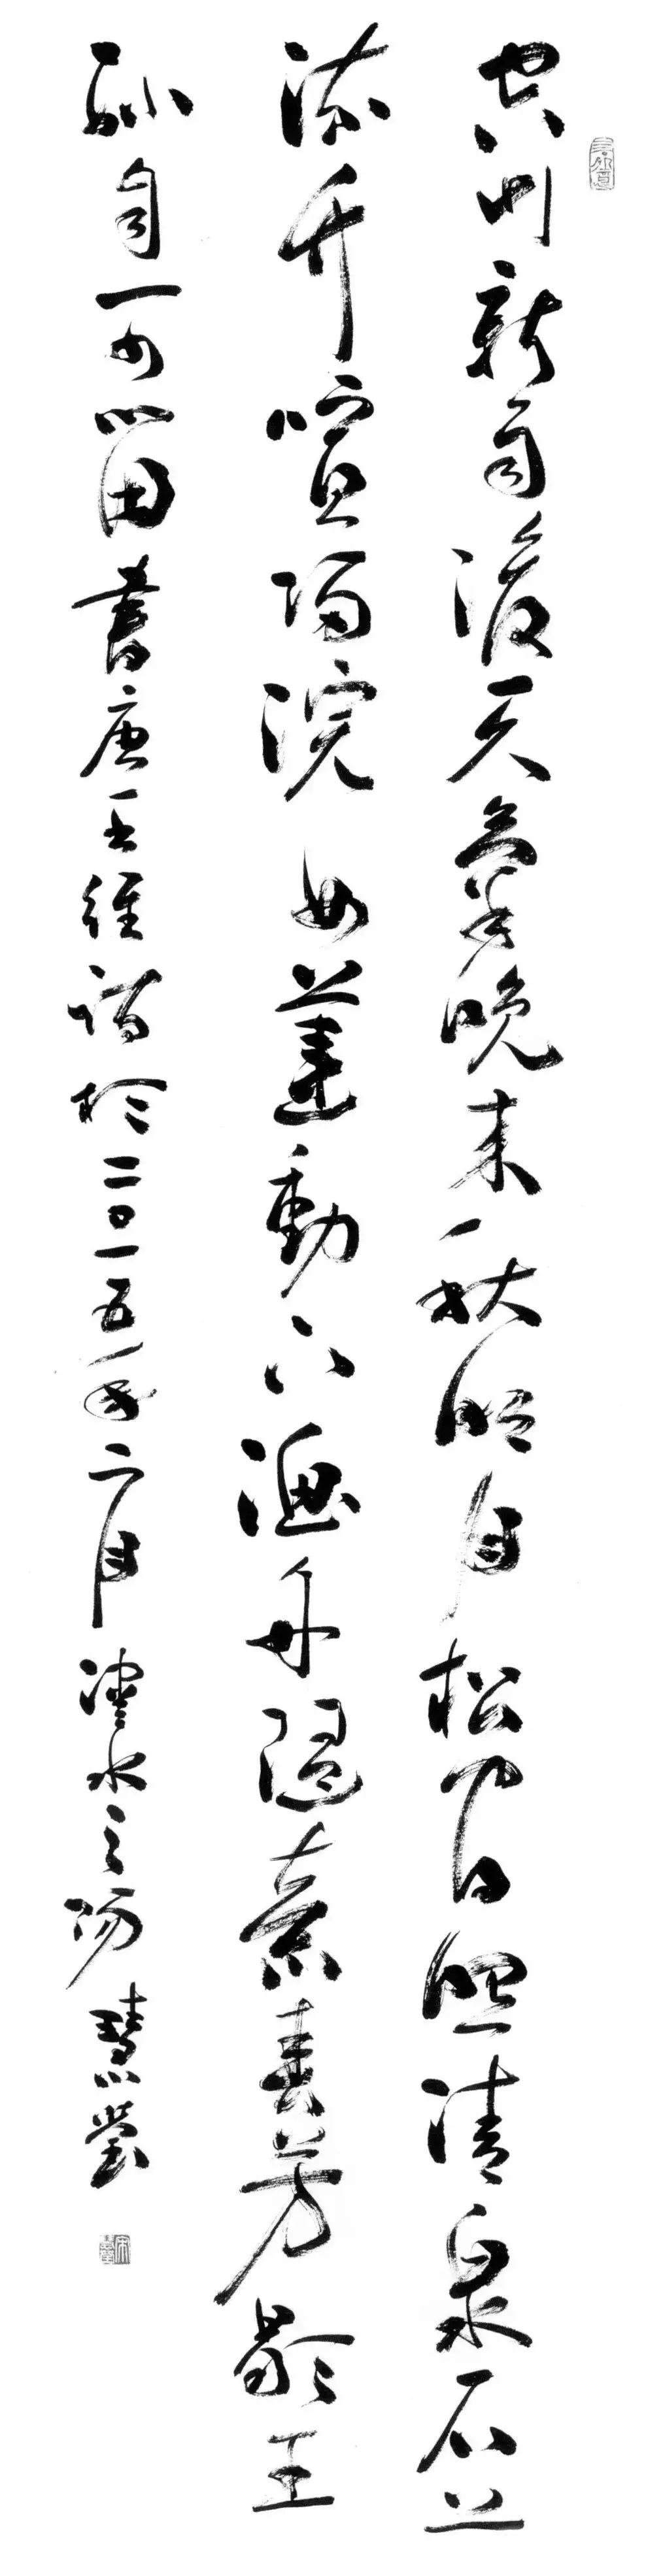 空山新雨後天氣晚來秋明月松間照清泉石上
流竹喧歸浣女蓮動下漁舟隨意春芳歇王
孫自可留書唐王維詩於二〇一五年月水之陽慧瑩